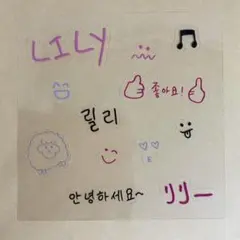 LILY
좋아요!
릴리
안녕하세요~
リリー